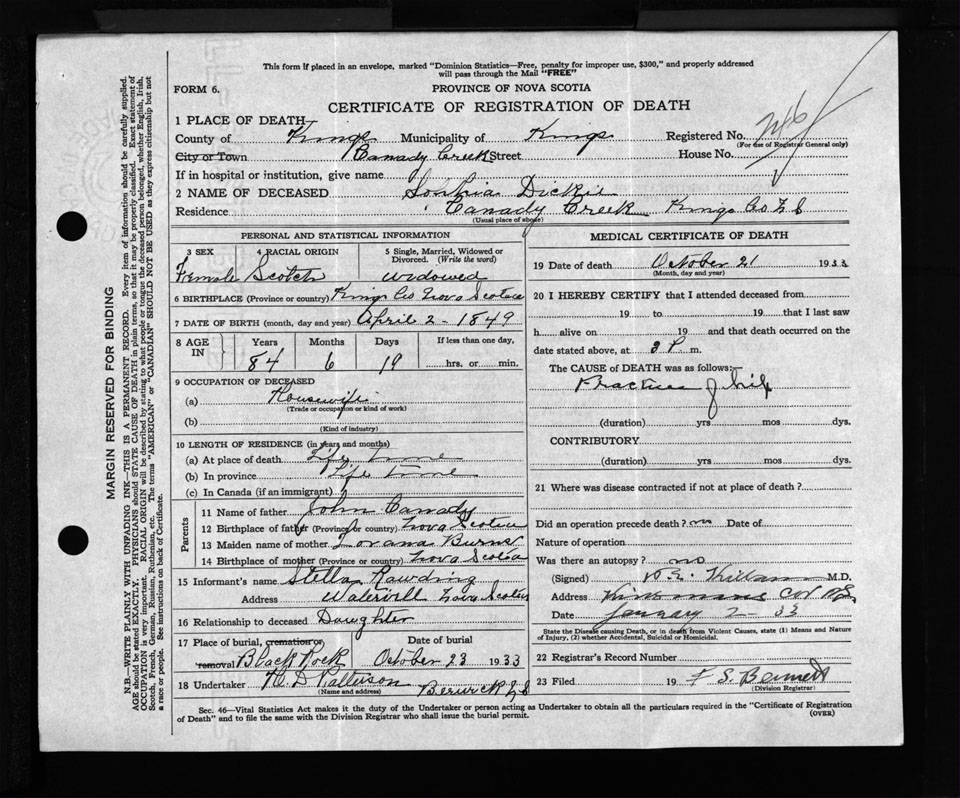 This form if placed in an envelope, marked "Dominion Statistics—Free, penalty for improper use, $300," and properly addressed
will pass through the Mail "FREE"
FORM 6.
PROVINCE OF NOVA SCOTIA
CERTIFICATE OF REGISTRATION OF DEATH
1 PLACE OF DEATH
County of Kings Municipality of Kings Registered No.
(For use of Registrar General only)
City or Town Canady Creek Street House No.
If in hospital or institution, give name
2 NAME OF DECEASED Dickie
Residence Canady Creek Kings Co N S
(Usual place of abode)
PERSONAL AND STATISTICAL INFORMATION
3 SEX 4 RACIAL ORIGIN 5 Single, Married, Widowed or Divorced. (Write the word)
Female Scotch widowed
6 BIRTHPLACE (Province or country) Kings Co Nova Scotia
7 DATE OF BIRTH (month, day and year) April 2 - 1849
8 AGE IN Years Months Days If less than one day,
84 6 19 hrs. or min.
9 OCCUPATION OF DECEASED
(a) Housewife
(Trade or occupation or kind of work)
(b)
(Kind of industry)
10 LENGTH OF RESIDENCE (in years and months)
(a) At place of death Life time
(b) In province Life time
(c) In Canada (if an immigrant)
Parents
11 Name of father John Canady
12 Birthplace of father (Province or country) Nova Scotia
13 Maiden name of mother Lovana Burns
14 Birthplace of mother (Province or country) Nova Scotia
15 Informant's name Stella Rawding
Address Watervill Nova Scotia
16 Relationship to deceased Daughter
17 Place of burial, cremation or removal Black Rock
Date of burial October 23 1933
18 Undertaker H. D Pattison Berwick N S
(Name and address)
MEDICAL CERTIFICATE OF DEATH
19 Date of death October 21 1933
(Month, day and year)
20 I HEREBY CERTIFY that I attended deceased from
19 to 19 that I last saw
h alive on 19 and that death occurred on
date stated above, at 3 P. m.
The CAUSE of DEATH was as follows:
Fracture of hip
(duration) yrs mos dys.
CONTRIBUTORY
(duration) yrs mos dys.
21 Where was disease contracted if not at place of death?
Did an operation precede death? no Date of
Nature of operation
Was there an autopsy? no
(Signed) Killam M.D.
Address
Date January 2 - 33
State the Disease causing Death, or in death from Violent Causes, state (1) Means and Nature
of Injury, (2) whether Accidental, Suicidal or Homicidal.
22 Registrar's Record Number
23 Filed 19 F S. Bennett
(Division Registrar)
Sec. 46—Vital Statistics Act makes it the duty of the Undertaker or person acting as Undertaker to obtain all the particulars required in the "Certificate of Registration
of Death" and to file the same with the Division Registrar who shall issue the burial permit.
(OVER)
MARGIN RESERVED FOR BINDING
N.B.—WRITE PLAINLY WITH UNFADING INK—THIS IS A PERMANENT RECORD. Every item of information should be carefully supplied.
AGE should be stated EXACTLY. PHYSICIANS should STATE CAUSE OF DEATH in plain terms, so that it may be properly classified. Exact statement of
OCCUPATION is very important. RACIAL ORIGIN will be described by stating to what people or tongue the deceased person belonged, whether English, Irish,
Scotch, French, German, Russian, Ruthenian, etc. The terms "AMERICAN" or "CANADIAN" SHOULD NOT BE USED as they express citizenship but not
a race or people. See instructions on back of Certificate.